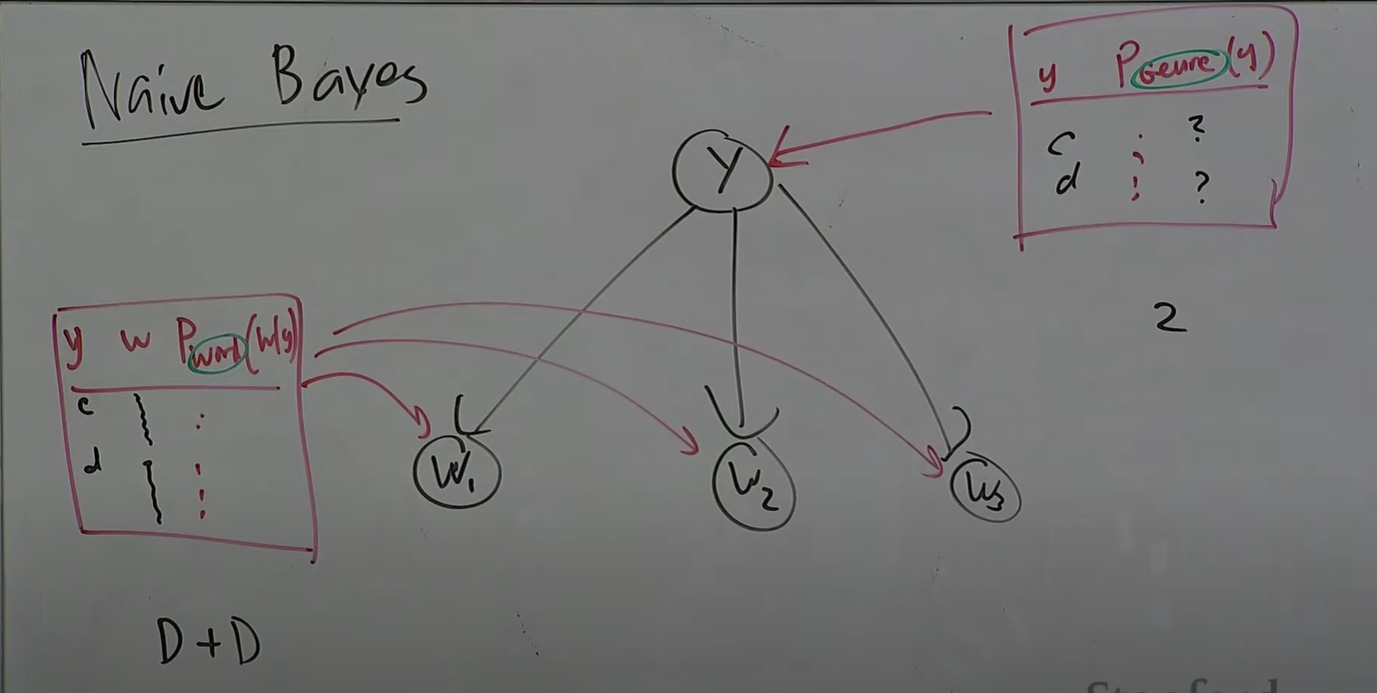 Naive Bayes
y P_genre(y)
c : ?
d : ?
2
Y
y w P_word(w|y)
c
d
W1 W2 W3
D + D